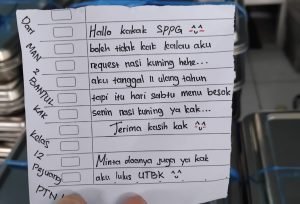 Hallo kakak SPPG ^_^
boleh tidak kak kalau aku
request nasi kuning hehe...
aku tanggal 11 ulang tahun
tapi itu hari sabtu menu besok
senin nasi kuning ya kak...
Terima kasih kak ^_^
Minta doanya juga ya kak
aku lulus UTBK ^_^
Dari
MAN
2
BANTUL
Kak
kelas
12
Pejuang
PTN